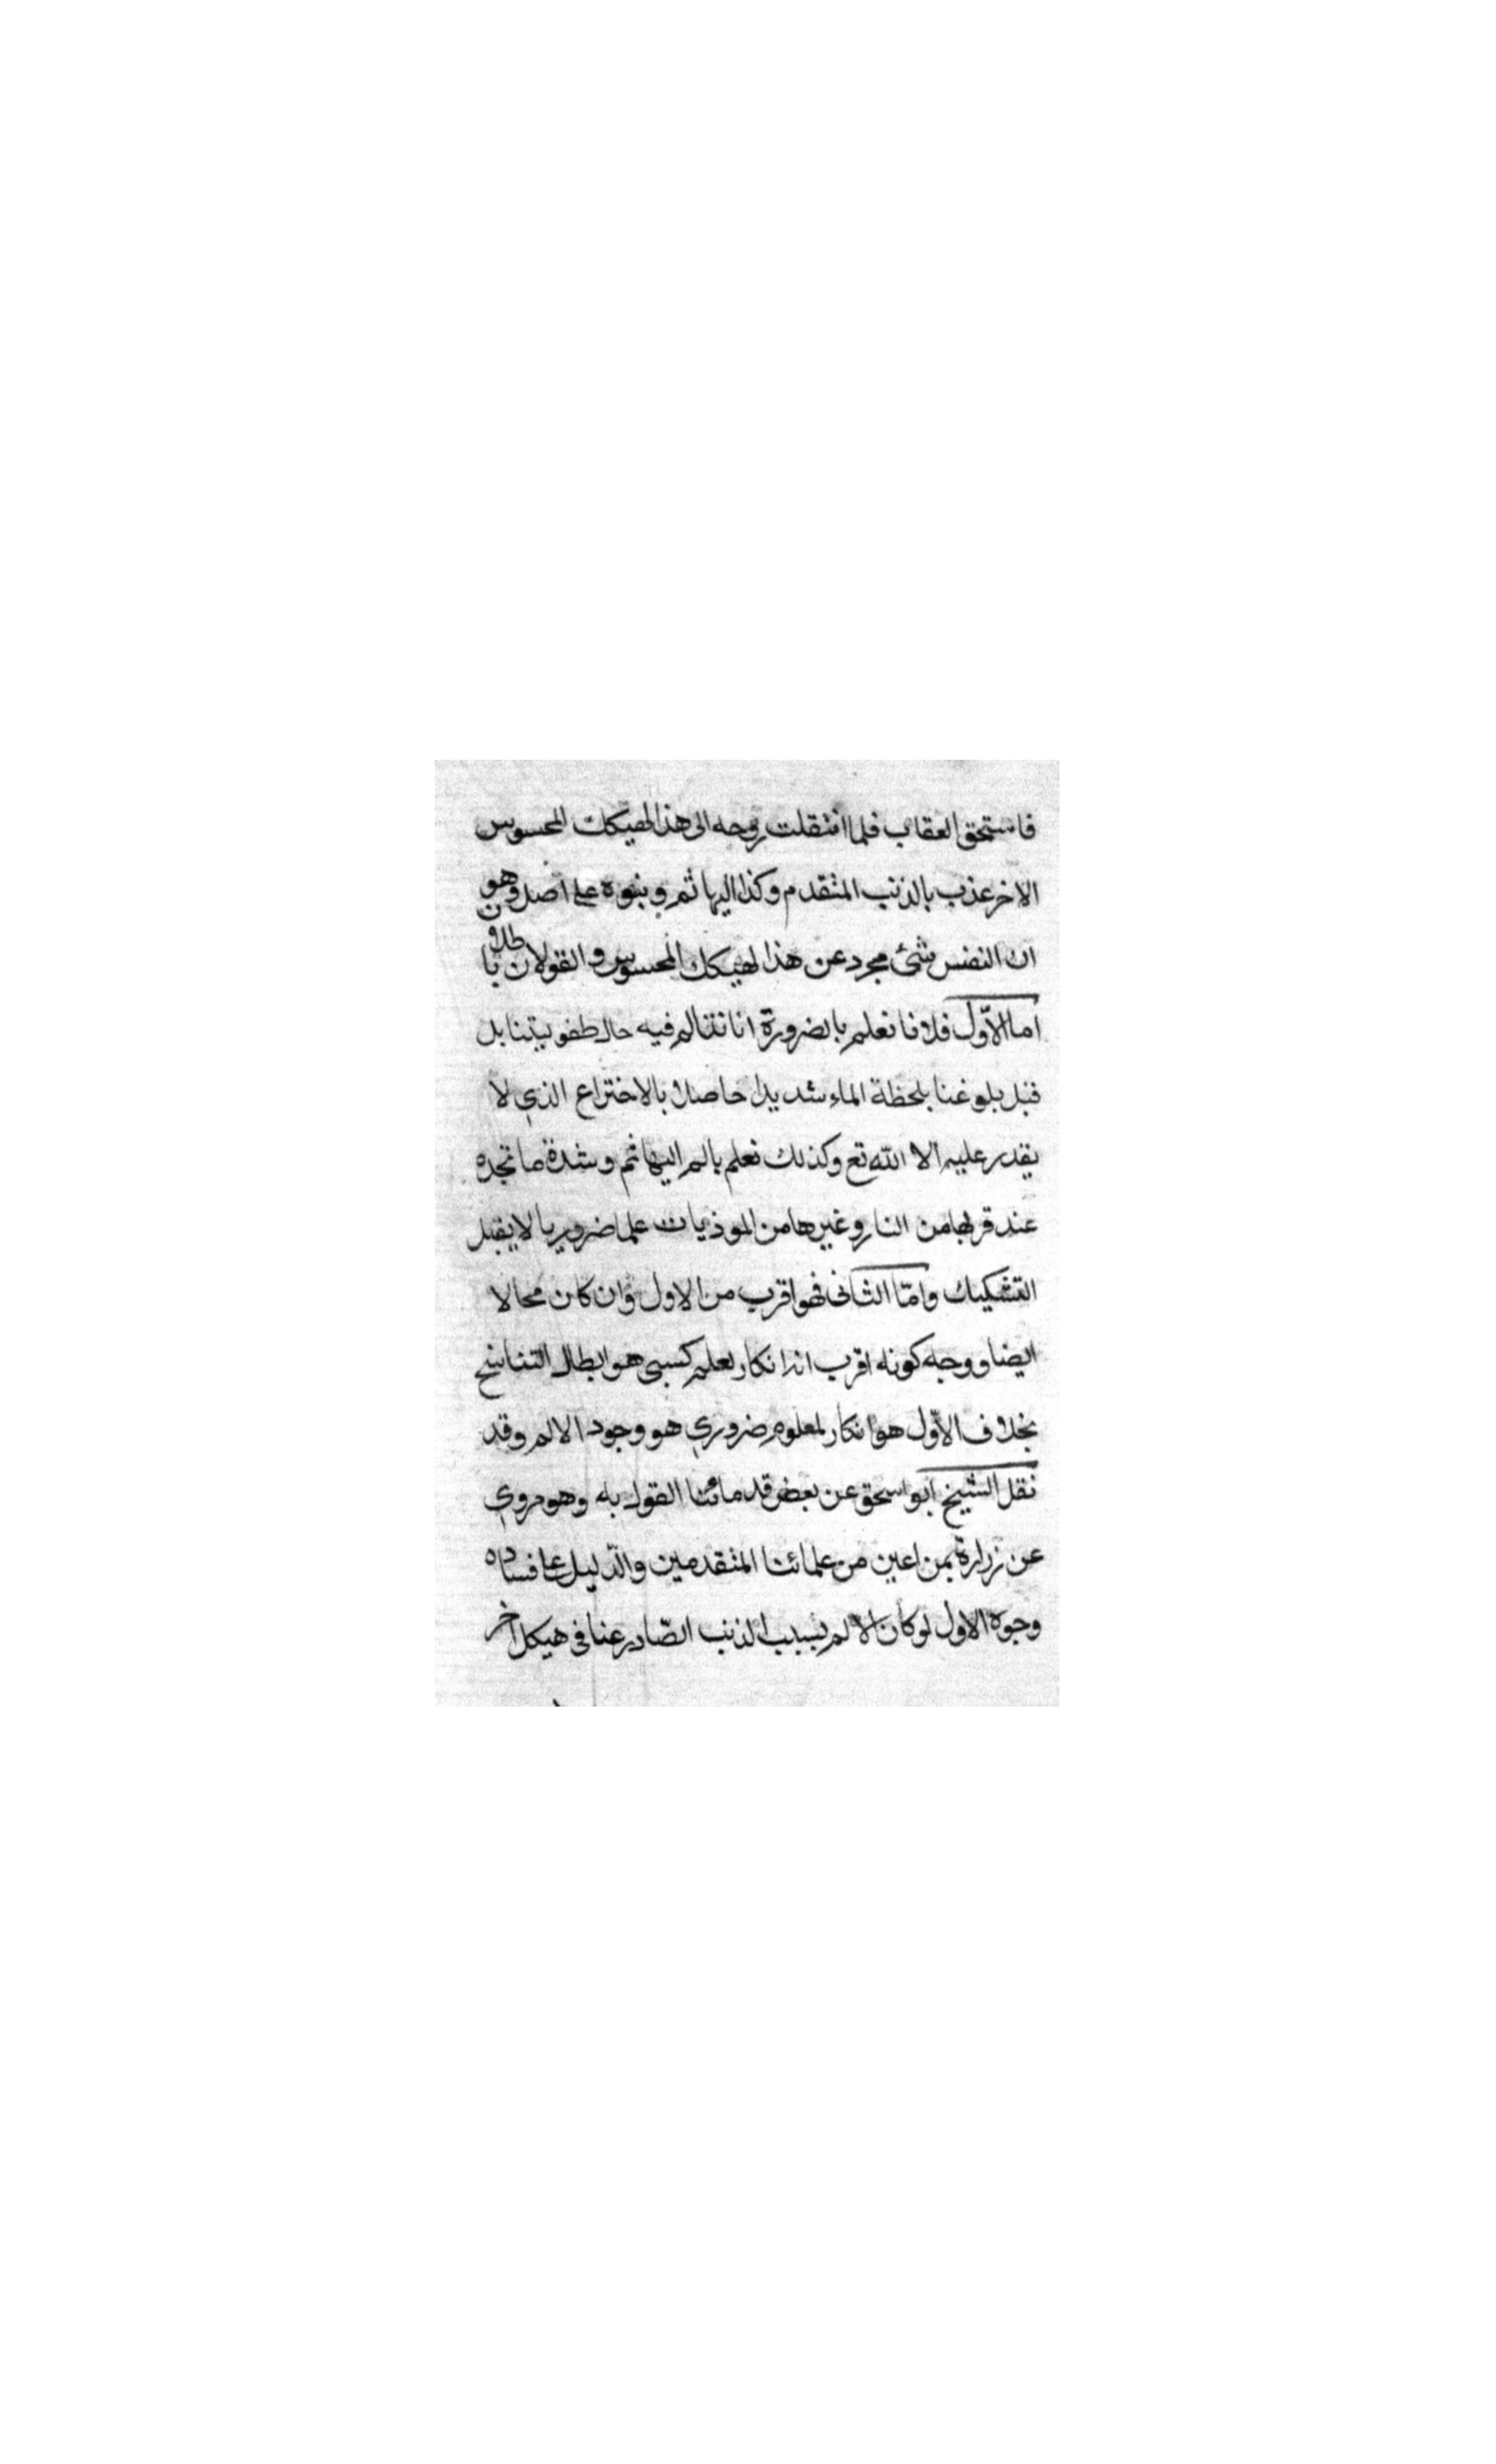 فاستحق العقاب فلما انتقلت روحه الى هذا الهيكل المحسوس
الاخر عذب بالذنب المتقدم وكذا البهائم وبنوه على اصل وهو
ان النفس شئ مجرد عن هذا الهيكل المحسوس والقولان باطلان
اما الاوّل فلانا نعلم بالضرورة انا نتالم فيه حال طفوليتنا بل
قبل بلوغنا بلحظة الماء شديدا حاصلا بالاختراع الذي لا
يقدر عليه الا الله تع وكذلك نعلم بالم البهائم وشدة ما تجده
عند قربها من النار وغيرها من الموذيات علما ضروريا لا يقبل
التشكيك وامّا الثانى فهو اقرب من الاول وان كان محالا
ايضا ووجه كونه اقرب انه انكار لعلم كسبى هو ابطال التناسخ
بخلاف الاوّل هو انكار لمعلوم ضروري هو وجود الالم وقد
نقل الشيخ ابو اسحق عن بعض قدمائنا القول به وهو مروي
عن زرارة بن اعين من علمائنا المتقدمين والدّليل على فساده
وجوه الاول لو كان الالم بسبب الذنب الصّادر عنا في هيكل اخر